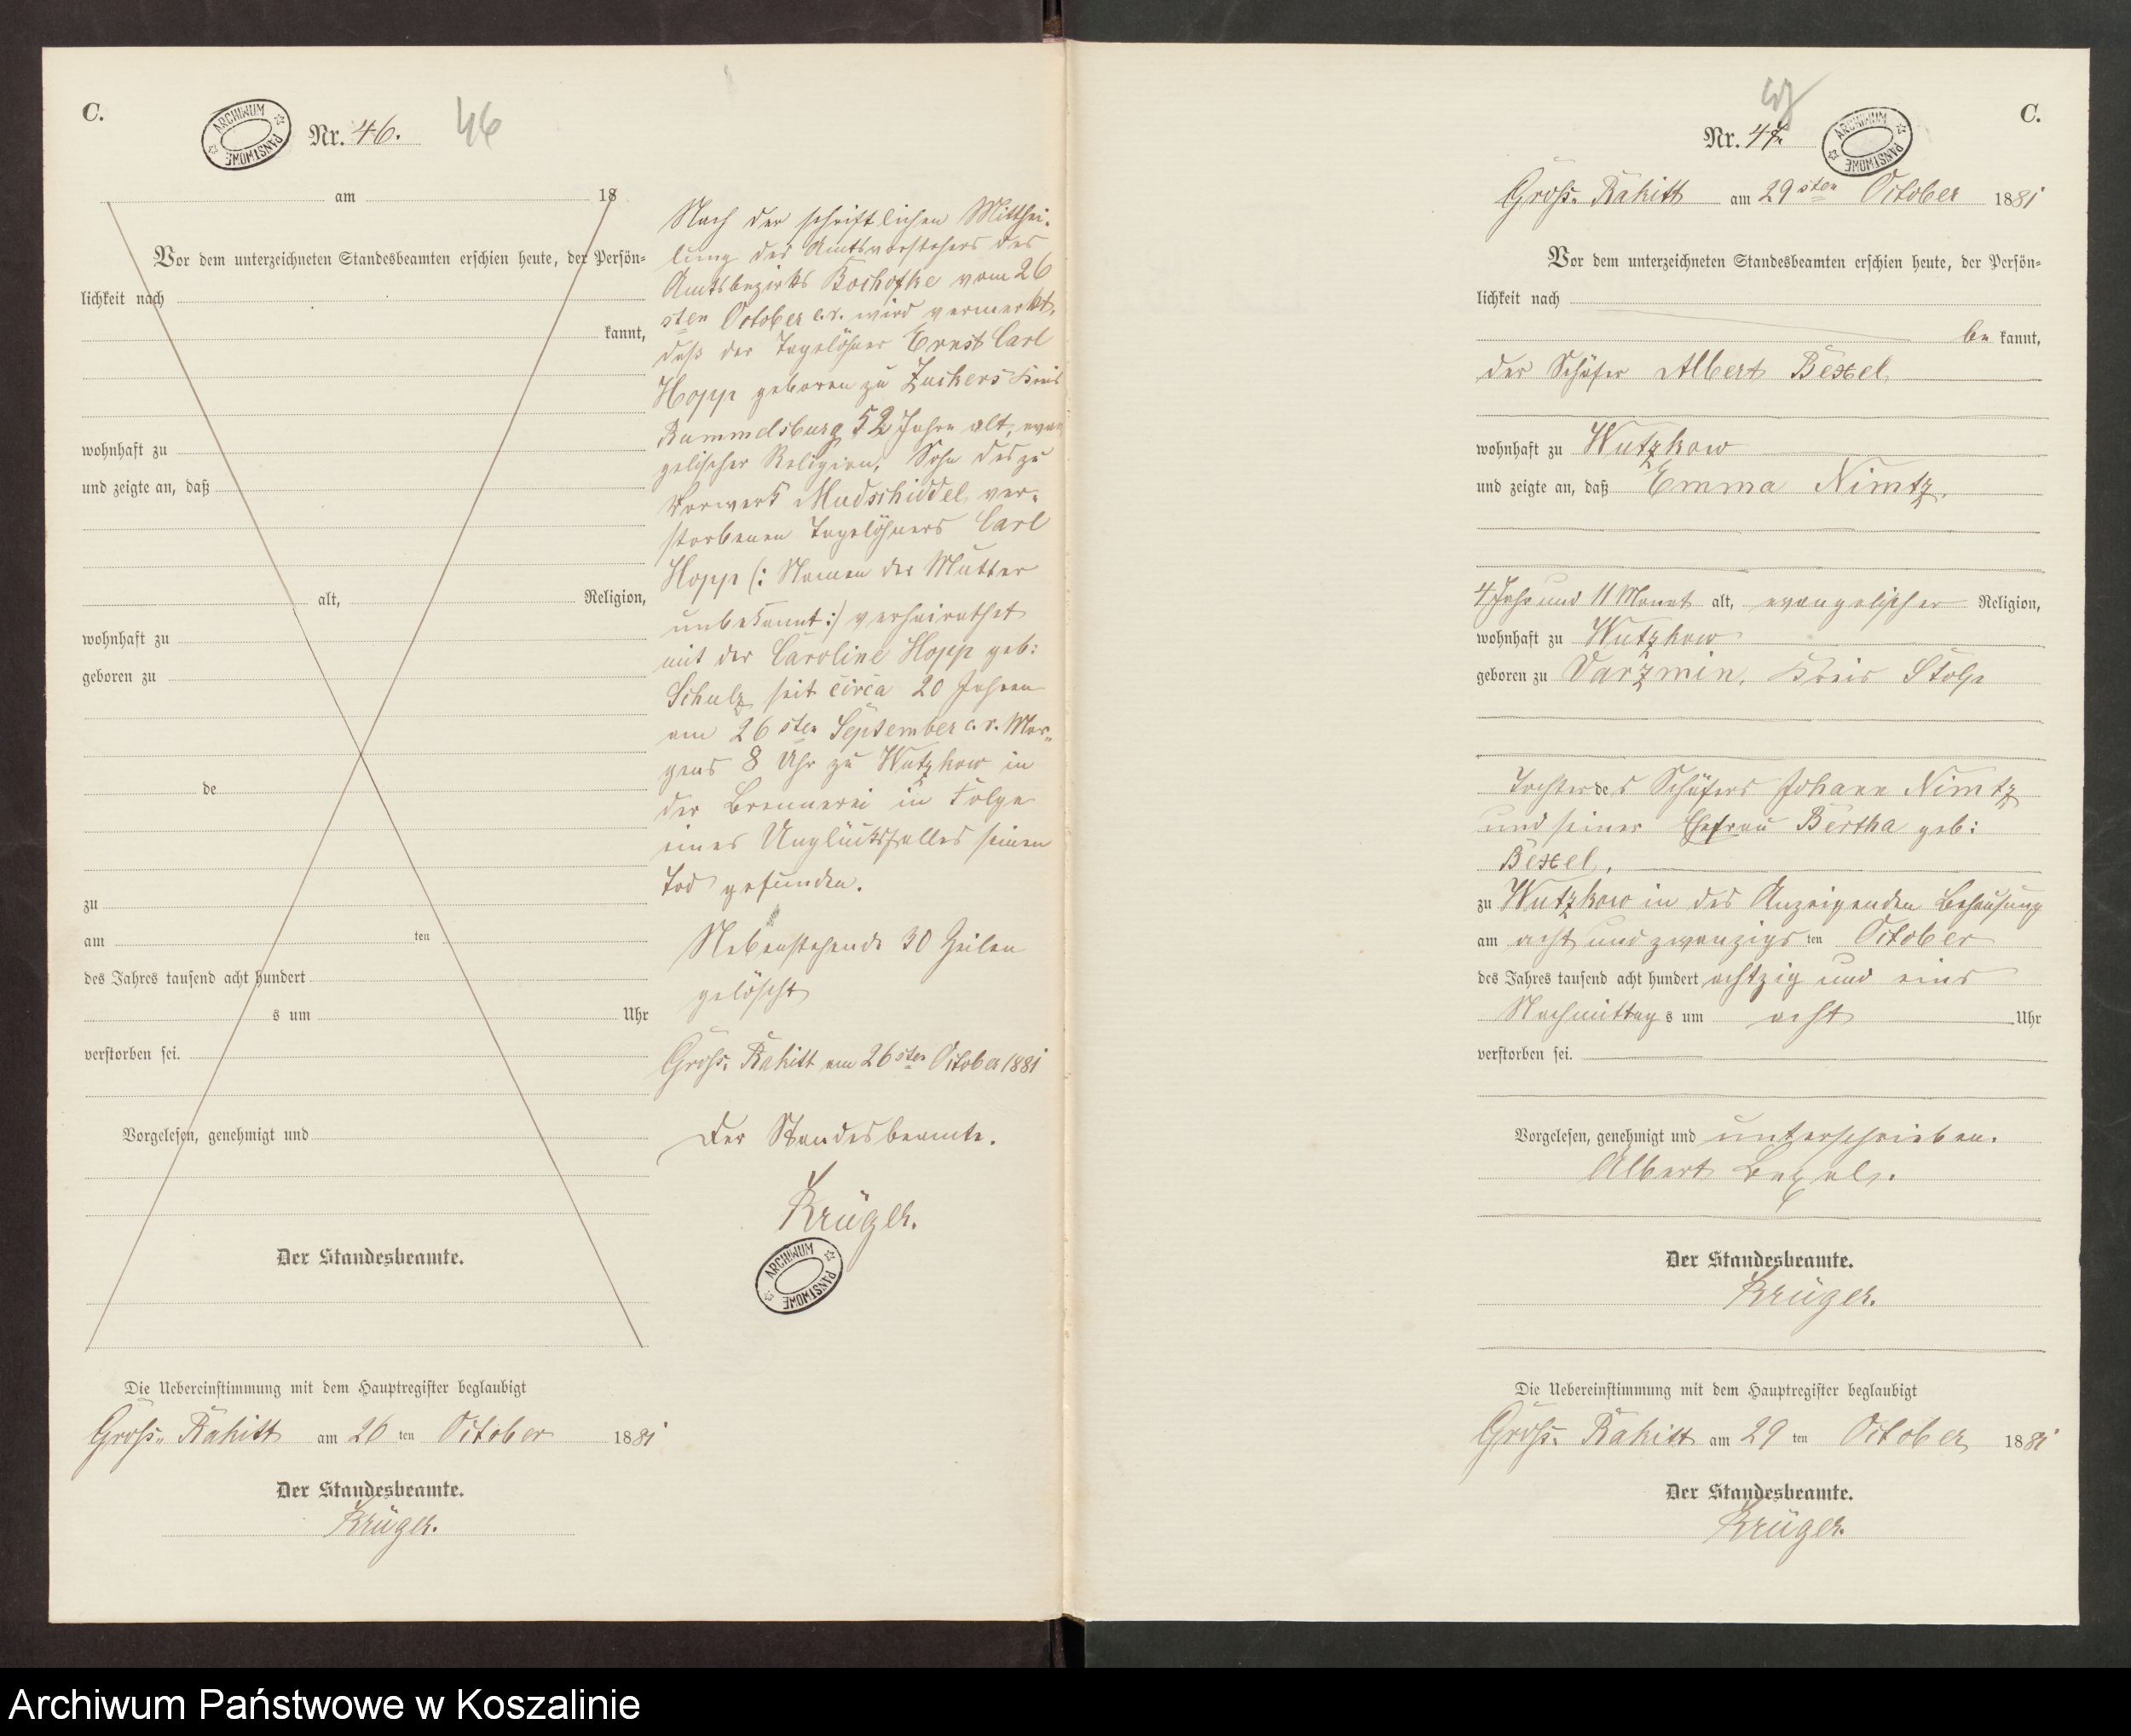 C.
ARCHIWUM PAŃSTWOWE
Nr. 46.
46
am 18
Vor dem unterzeichneten Standesbeamten erschien heute, der Persön-
lichkeit nach
kannt,
wohnhaft zu
und zeigte an, daß
alt, Religion,
wohnhaft zu
geboren zu
de
zu
am ten
des Jahres tausend acht hundert
s um Uhr
verstorben sei.
Vorgelesen, genehmigt und
Der Standesbeamte.
Die Uebereinstimmung mit dem Hauptregister beglaubigt
Gross-Rakitt am 26 ten October 1881
Der Standesbeamte.
Krüger.
Nach der schriftlichen Mitthei-
lung des Amtsvorstehers des
Amtsbezirks vom 26
sten October c.r. wird vermerkt,
daß der Tagelöhner Ernst Carl
Hopp geboren zu Zuckers Kreis
Rummelsburg 52 Jahre alt, evan
gelischer Religion, Sohn des zu
Vorwerk Mudschiddel ver-
storbenen Tagelöhners Carl
Hopp (: Namen der Mutter
unbekannt :) verheirathet
mit der Caroline Hopp geb:
Schulz seit circa 20 Jahren
am 26sten September c.r. Mor-
gens 8 Uhr zu Wutzkow in
der Brennerei in Folge
eines Unglücksfalles seinen
Tod gefunden.
Nebenstehende 30 Zeilen
gelöscht
Gross-Rakitt am 26sten October 1881
Der Standesbeamte.
Krüger.
ARCHIWUM PAŃSTWOWE
47
C.
Nr. 47.
ARCHIWUM PAŃSTWOWE
Gross-Rakitt am 29sten October 1881
Vor dem unterzeichneten Standesbeamten erschien heute, der Persön-
lichkeit nach
be kannt,
der Schäfer Albert Bexel
wohnhaft zu Wutzkow
und zeigte an, daß Emma Nimtz,
4 Jahr und 11 Monat alt, evangelischer Religion,
wohnhaft zu Wutzkow
geboren zu Varzmin, Kreis Stolp
Tochter des Schäfers Johann Nimtz
und seiner Ehefrau Bertha geb:
Bexel,
zu Wutzkow in des Anzeigenden Behausung
am acht und zwanzigs ten October
des Jahres tausend acht hundert achtzig und eins
Nachmittag s um acht Uhr
verstorben sei.
Vorgelesen, genehmigt und unterschrieben.
Albert Bexel.
Der Standesbeamte.
Krüger.
Die Uebereinstimmung mit dem Hauptregister beglaubigt
Gross-Rakitt am 29 ten October 1881
Der Standesbeamte.
Krüger.
Archiwum Państwowe w Koszalinie